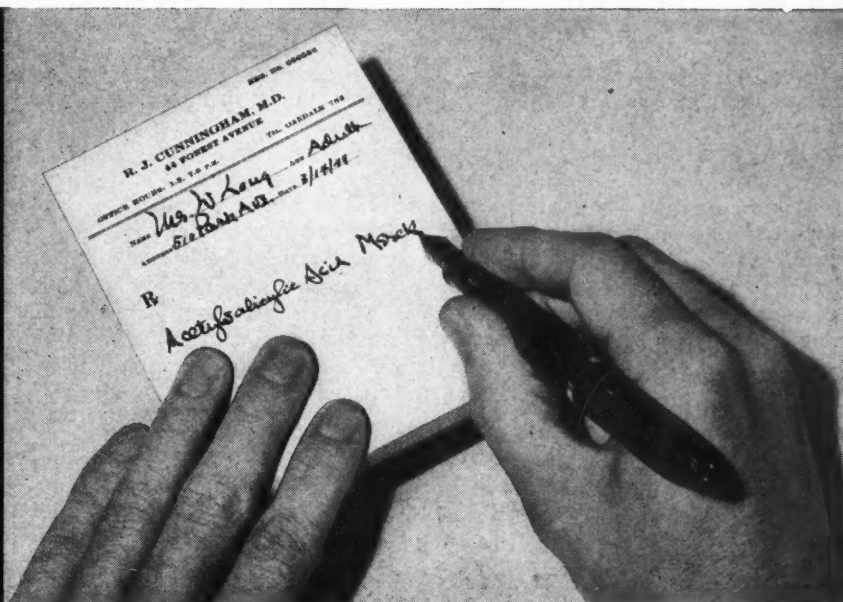 REG. NO.
R. J. CUNNINGHAM, M.D.
44 FOREST AVENUE
OFFICE HOURS: TEL. OAKDALE 702
NAME W Long AGE Adult
ADDRESS 510 Park Ave. DATE
℞
Acetylsalicylic Acid Merck